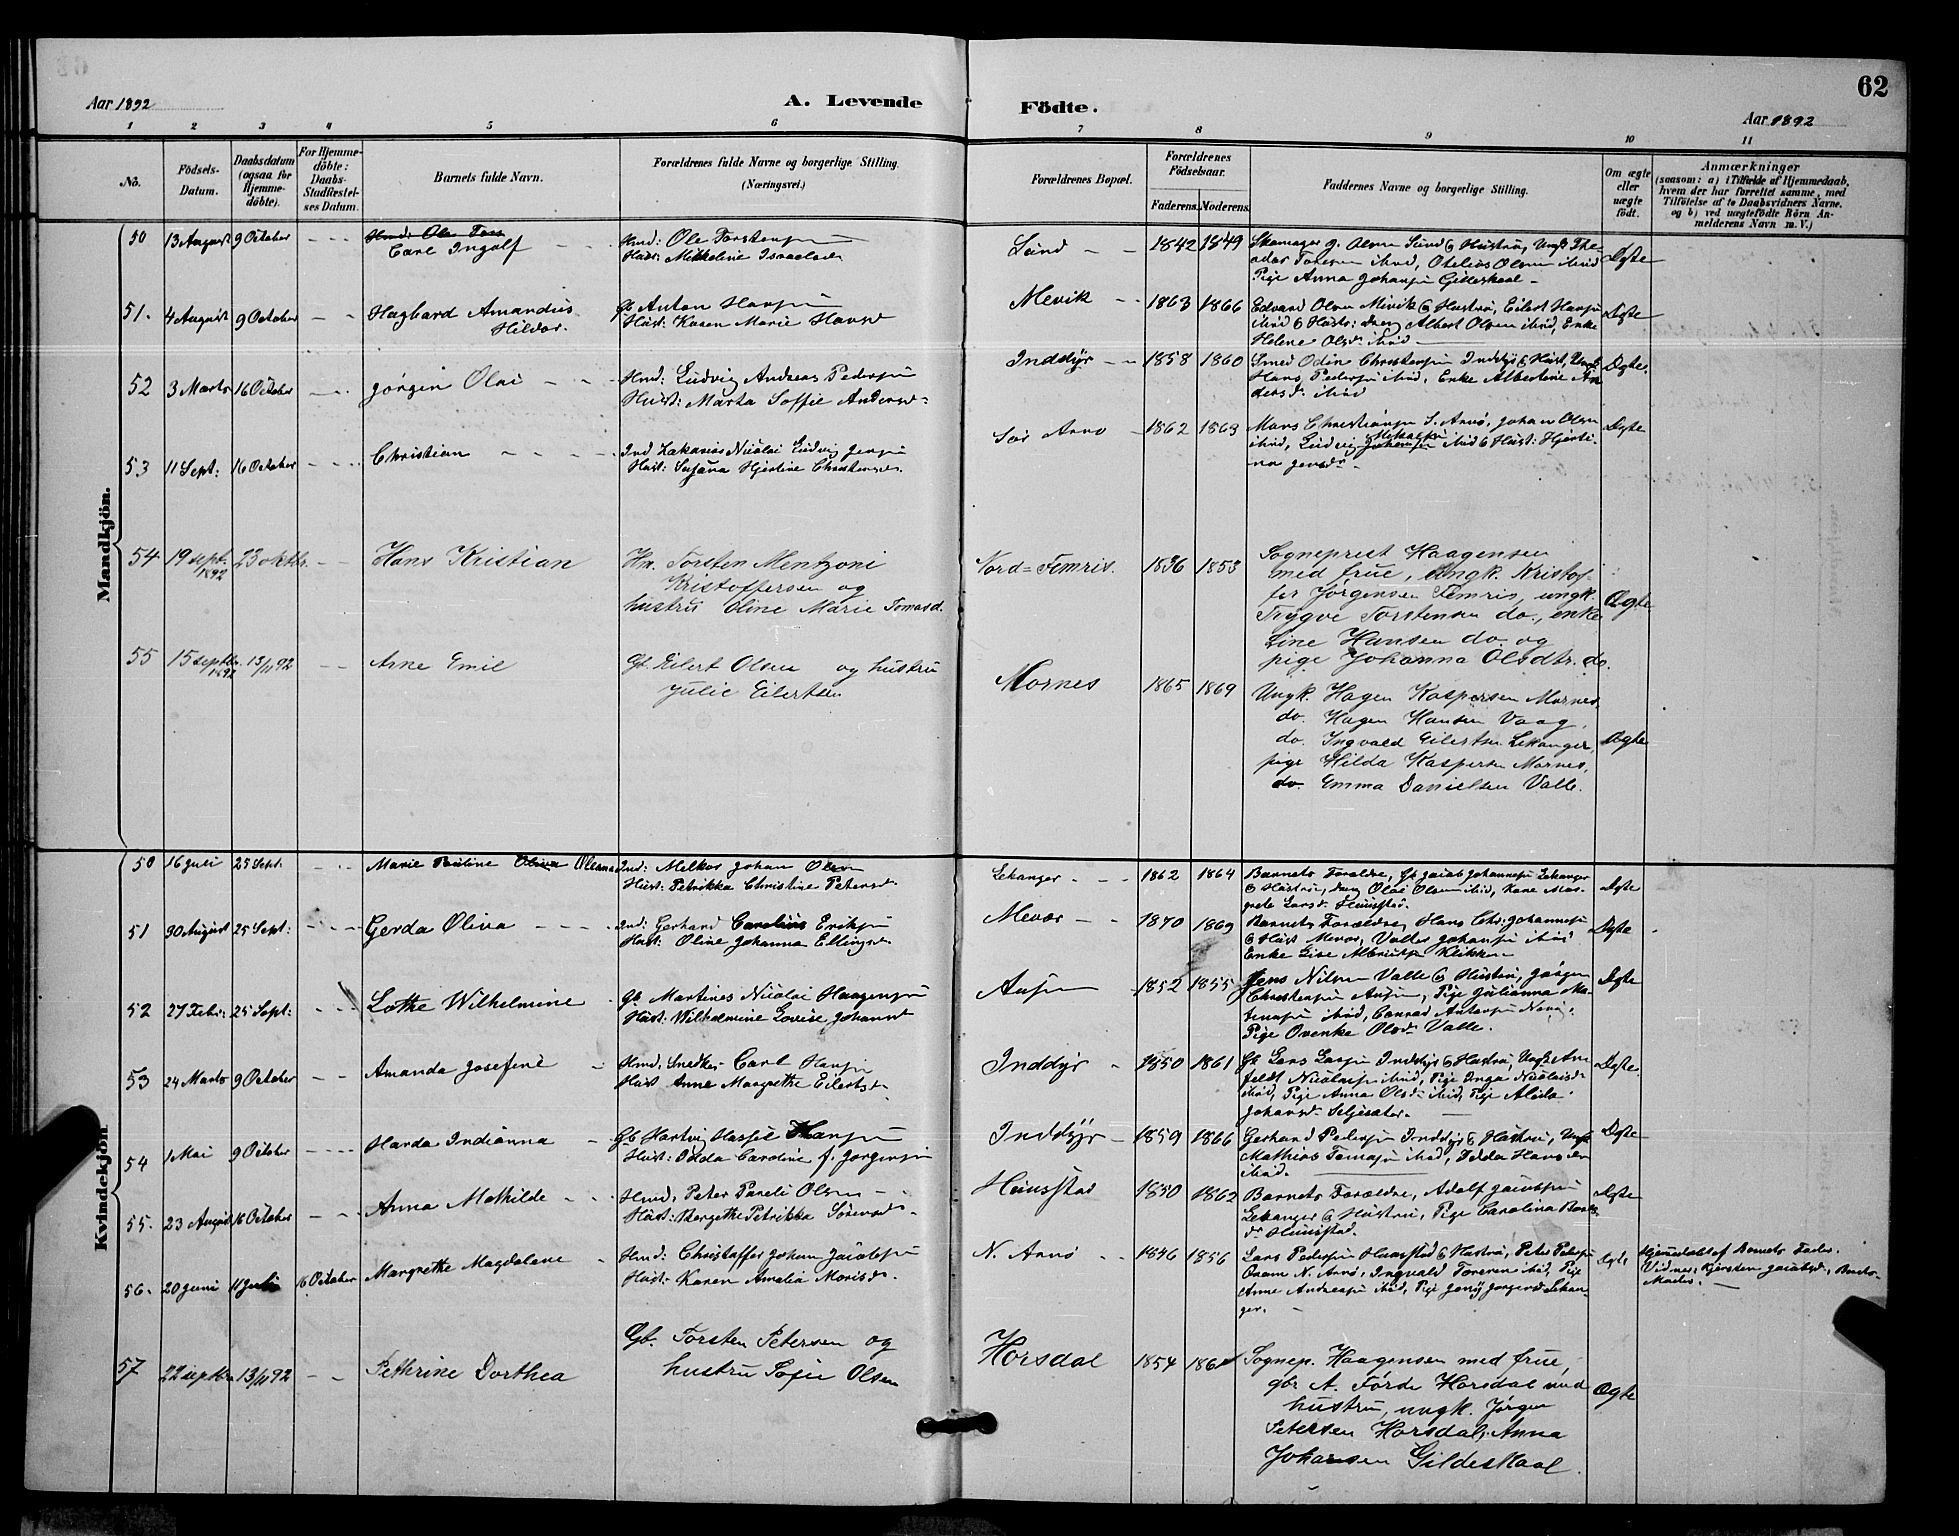 62
Aar 1892
A. Levende Födte.
Aar 1892
1 2 3 4 5 6 7 8 9 10 11
No.
Födsels-
Datum.
Daabsdatum
(ogsaa for
Hjemme-
döbte).
For Hjemme-
döbte:
Daabs-
Stadfæstel-
ses Datum.
Barnets fulde Navn.
Forældrenes fulde Navne og borgerlige Stilling.
(Næringsvei.)
Forældrenes Bopæl.
Forældrenes
Födselsaar.
Faderens. Moderens.
Faddernes Navne og borgerlige Stilling.
Om ægte
eller
uægte
födt.
Anmærkninger
(saasom: a) i Tilfælde af Hjemmedaab,
hvem der har forrettet samme, med
Tilföielse af to Daabsvidners Navne,
og b) ved uægtefödte Börn An-
melderens Navn m. V.)
Mandkjön.
50 13 August 9 October
Carl Ingolf
Hmd: Ole Torstensen
Hust: Mikeline Israelsd.
Lund 1842 1849
Skomager O. Olsen Lund & Hustru, Ungk. The-
odor Toresen ibid, Otelius Olsen ibid
Pige Anna Johansen Gildeskaal
Ægte
51. 4 August 9 October
Hagbard Amandus
Hildor.
Gb Anton Hansen
Hust: Karen Marie Hansd
Mevik 1863 1866
Edvard Olsen Mevik & Hustru, Eilert Hansen
ibid & Hustr: dreng Albert Olsen ibid, Enke
Helene Olsd. ibid
Ægte
52 3 Marts 16 October
Jørgen Olai
Hmd: Ludvig Andreas Pedersen
Hust: Marta Soffie Andersd.
Inddyr 1858 1860
Smed Odin Christensen Inddyr & Hust, Ungk.
Hans Pedersen ibid, Enke Albertine An-
dersd. ibid
Ægte.
53 11 Sept: 16 October
Christian
Ind Zakarias Nicolai Ludvig Jensen
Hust: Susana Hjertine Christensd.
Sør Arnø 1862 1863
Mons Christiansen S. Arnø, Johan Olsen
ibid, Ludvig Johansen ibid & Hust: Hjerti-
na Jensd.
Ægte
54 19 sept. 1892 23 oktbr.
Hans Kristian
Hm. Torsten Mentzoni
Kristoffersen og
hustru Oline Marie Tomasd.
Nord=Femris. 1836 1853
Sogneprest Haagensen
med frue, ungk. Kristof-
fer Jørgensen Femris, ungk.
Trygve Torstensen do., enke
Line Hansen do. og
pige Johanna Olsdtr. do.
Ægte
55 15 septbr. 1892 13/11 92
Arne Emil
Gb. Eilert Olsen og hustru
Julie Eilertsen
Mornes 1865 1869
Ungk. Hagen Kaspersen Mornes,
do. Hagen Hansen Vaag,
do. Ingvald Eilertsen Lekanger,
pige Hilda Kaspersen Mornes,
do. Emma Danielsen Valle.
Ægte
Kvindekjön
50 16 Juli 25 Sept:
Marie Pauline Oliva Oleana
Ind: Melkor Johan Olsen
Hust: Petrikka Christine Petersd.
Lekanger 1862 1864
Barnets Forældre, Gb Jacob Johannesen Lekanger
& Hustru, dreng Olai Olsen ibid, Kone Mar-
grete Larsd. Hunstad.
Ægte
51 30 August 25 Sept:
Gerda Oliva
Ind: Gerhard Carelius Eriksen
Hust: Oline Johanna Ellingsd.
Mevær 1870 1869
Barnets Forældre, Hans Chr. Johannesen
& Hust Mevær, Valter Johansen ibid
Enke Lise Albrigtsen Klikken
Ægte
52 27 Febr: 25 Sept:
Lothe Wilhelmine
Gb Martines Nicolai Haagensen
Hust: Wilhelmine Lovise Johansd
1852 1855
Jens Nilsen Valle & Hustru, Jørgen
Pige Ovenke Olsd. Valle.
Ægte
53 24 Marts 9 October
Amanda Josefine
Hmd. Snedker Carl Hansen
Hust Anne Margrethe Eilertsd.
Inddyr 1850 1861
Gb Lars Larsen Inddyr & Hustru, Ungk. An-
feldt Nicolaisen ibid, Pige Inga Nicolaisd.
ibid, Pige Anna Olsd. ibid, Pige Alida
Johansd. Seljesæter.
Ægte
54 1 Mai 9 October
Harda Indianna
Gb Hartvig Hassel Hansen
Hust: Odda Caroline f. Jørgensen
Inddyr 1859 1866
Gerhard Pedersen Inddyr & Hustru, Ungk
Mathias Tomasen ibid, Odda Hansen
ibid.
Ægte
55. 23 August 16 October
Anna Mathilde
Hmd, Peter Pareli Olsen
Hust: Bergethe Petrikka Sørensd.
Hunstad 1850 1862
Barnets Forældre, Adolf Jacobsen
Lekanger & Hustru, Pige Carolina
Hunstad.
Ægte
56. 20 Juni 11 Juli 16 October
Margrethe Magdalene
Hmd: Christoffer Johan Jacobsen
Hust: Karen Amalia Morisd.
N. Arnø 1846 1856
Lars Pedersen Hunstad & Hustru, Peter Petersen
Osam N. Arnø, Ingvald Toresen ibid, Pige
Anne Andreasen ibid, Pige Jenny Jørgensd. Lekan-
ger.
Ægte
Hjemmedøbt af Barnets Fader.
Vidner: Kjersten Jacobsd., Barnets
Moder.
57 22 septbr. 13/11 92
Pethrine Dorthea
Gb. Torsten Petersen og
hustru Sofie Olsen
Horsdal 1854
Sognep. Haagensen med frue,
gbr A. Førde Horsdal med
hustru, ungk. Jørgen
Petersen Horsdal, Anna
Johansen Gildeskaal.
Ægte